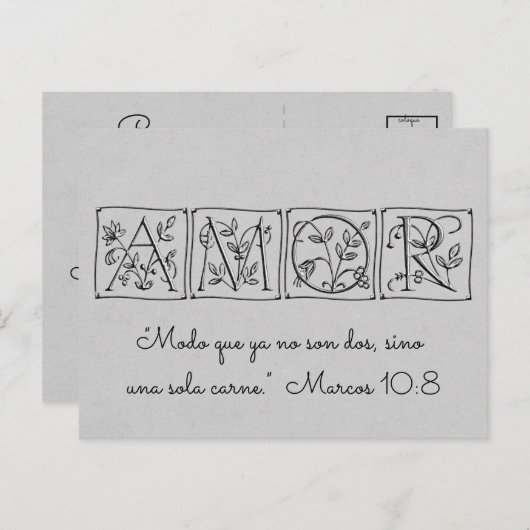 coloque
AMOR
"Modo que ya no son dos, sino
una sola carne." Marcos 10:8